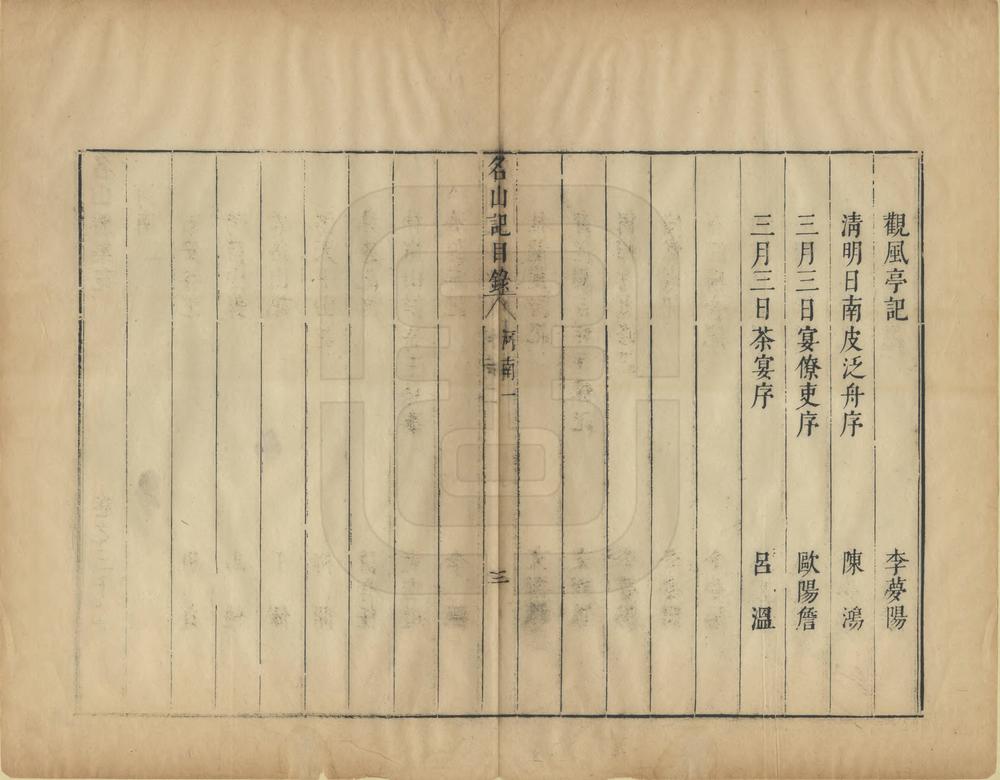 觀風亭記 李夢陽
淸明日南皮泛舟序 陳鴻
三月三日宴僚吏序 歐陽詹
三月三日茶宴序 呂溫
名山記目錄 河南一 三